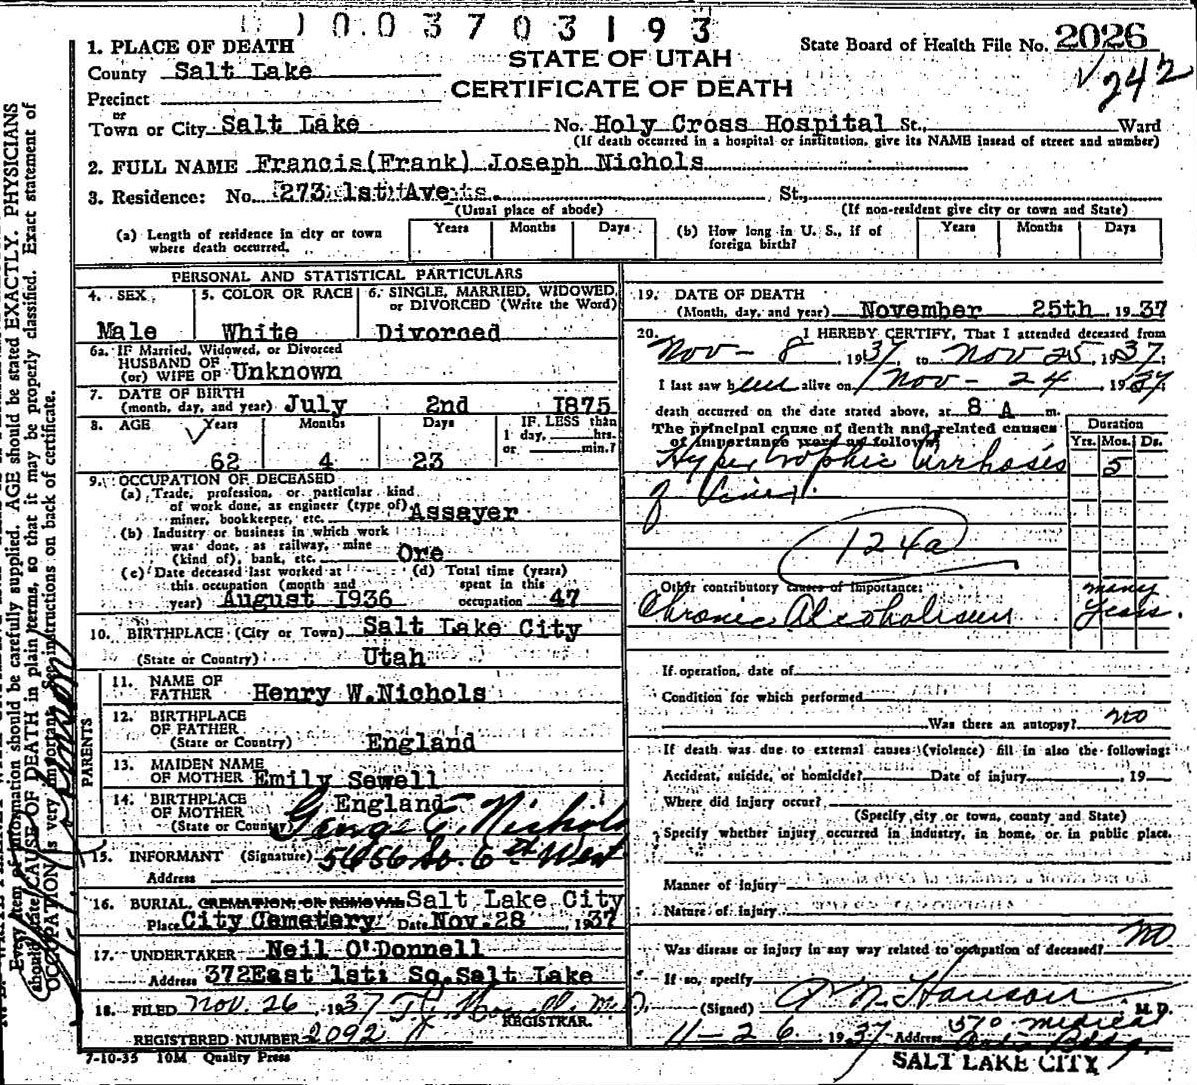 1003703193
State Board of Health File No. 2026
242
STATE OF UTAH
CERTIFICATE OF DEATH
1. PLACE OF DEATH
County Salt Lake
Precinct
or
Town or City Salt Lake No. Holy Cross Hospital St., Ward
(If death occurred in a hospital or institution, give its NAME instead of street and number)
2. FULL NAME Francis(Frank) Joseph Nichols
3. Residence: No. 273 1st Ave. St.,
(Usual place of abode) (If non-resident give city or town and State)
(a) Length of residence in city or town where death occurred. Years Months Days
(b) How long in U. S., if of foreign birth? Years Months Days
PERSONAL AND STATISTICAL PARTICULARS
4. SEX Male
5. COLOR OR RACE White
6. SINGLE, MARRIED, WIDOWED, or DIVORCED (Write the Word) Divorced
6a. IF Married, Widowed, or Divorced
HUSBAND OF
(or) WIFE OF Unknown
7. DATE OF BIRTH
(month, day, and year) July 2nd 1875
8. AGE Years Months Days IF LESS than
1 day, hrs.
or min.?
62 4 23
9. OCCUPATION OF DECEASED
(a) Trade, profession, or particular kind
of work done, as engineer (type of)
miner, bookkeeper, etc. Assayer
(b) Industry or business in which work
was done, as railway, mine
(kind of), bank, etc. Ore
(c) Date deceased last worked at
this occupation (month and
year) August 1936
(d) Total time (years)
spent in this
occupation 47
10. BIRTHPLACE (City or Town) Salt Lake City
(State or Country) Utah
PARENTS
11. NAME OF
FATHER Henry W.Nichols
12. BIRTHPLACE
OF FATHER
(State or Country) England
13. MAIDEN NAME
OF MOTHER Emily Sewell
14. BIRTHPLACE
OF MOTHER
(State or Country) England
George E. Nichols
15. INFORMANT (Signature) 5656 So. 6th West
Address
16. BURIAL, CREMATION, OR REMOVAL Salt Lake City
Place City Cemetery Date Nov. 28 1937
17. UNDERTAKER Neil O'Donnell
Address 372 East 1st. So. Salt Lake
18. FILED Nov. 26, 1937 M.D.
REGISTRAR.
REGISTERED NUMBER 2092
7-10-35 10M Quality Press
19. DATE OF DEATH
(Month, day, and year) November 25th 1937
20. I HEREBY CERTIFY, That I attended deceased from
Nov - 8, 1937, to Nov 25, 1937;
I last saw him alive on Nov - 24 1937;
death occurred on the date stated above, at 8 A m.
The principal cause of death and related causes
of importance were as follows:
Duration
Yrs. Mos. Ds.
Hypertrophic Cirrhosis 5
of Liver.
124a
Other contributory causes of importance:
Chronic Alcoholism many years.
If operation, date of
Condition for which performed
Was there an autopsy? no
If death was due to external causes (violence) fill in also the following:
Accident, suicide, or homicide? Date of injury 19
Where did injury occur?
(Specify city or town, county and State)
Specify whether injury occurred in industry, in home, or in public place.
Manner of injury
Nature of injury
Was disease or injury in any way related to occupation of deceased? no
If so, specify
(Signed) M. D.
11-26, 1937 Address 570 Medical
Arts Bldg.
SALT LAKE CITY
Every item of information should be carefully supplied. AGE should be stated EXACTLY. PHYSICIANS
should state CAUSE OF DEATH in plain terms, so that it may be properly classified. Exact statement of
OCCUPATION is very important. See instructions on back of certificate.